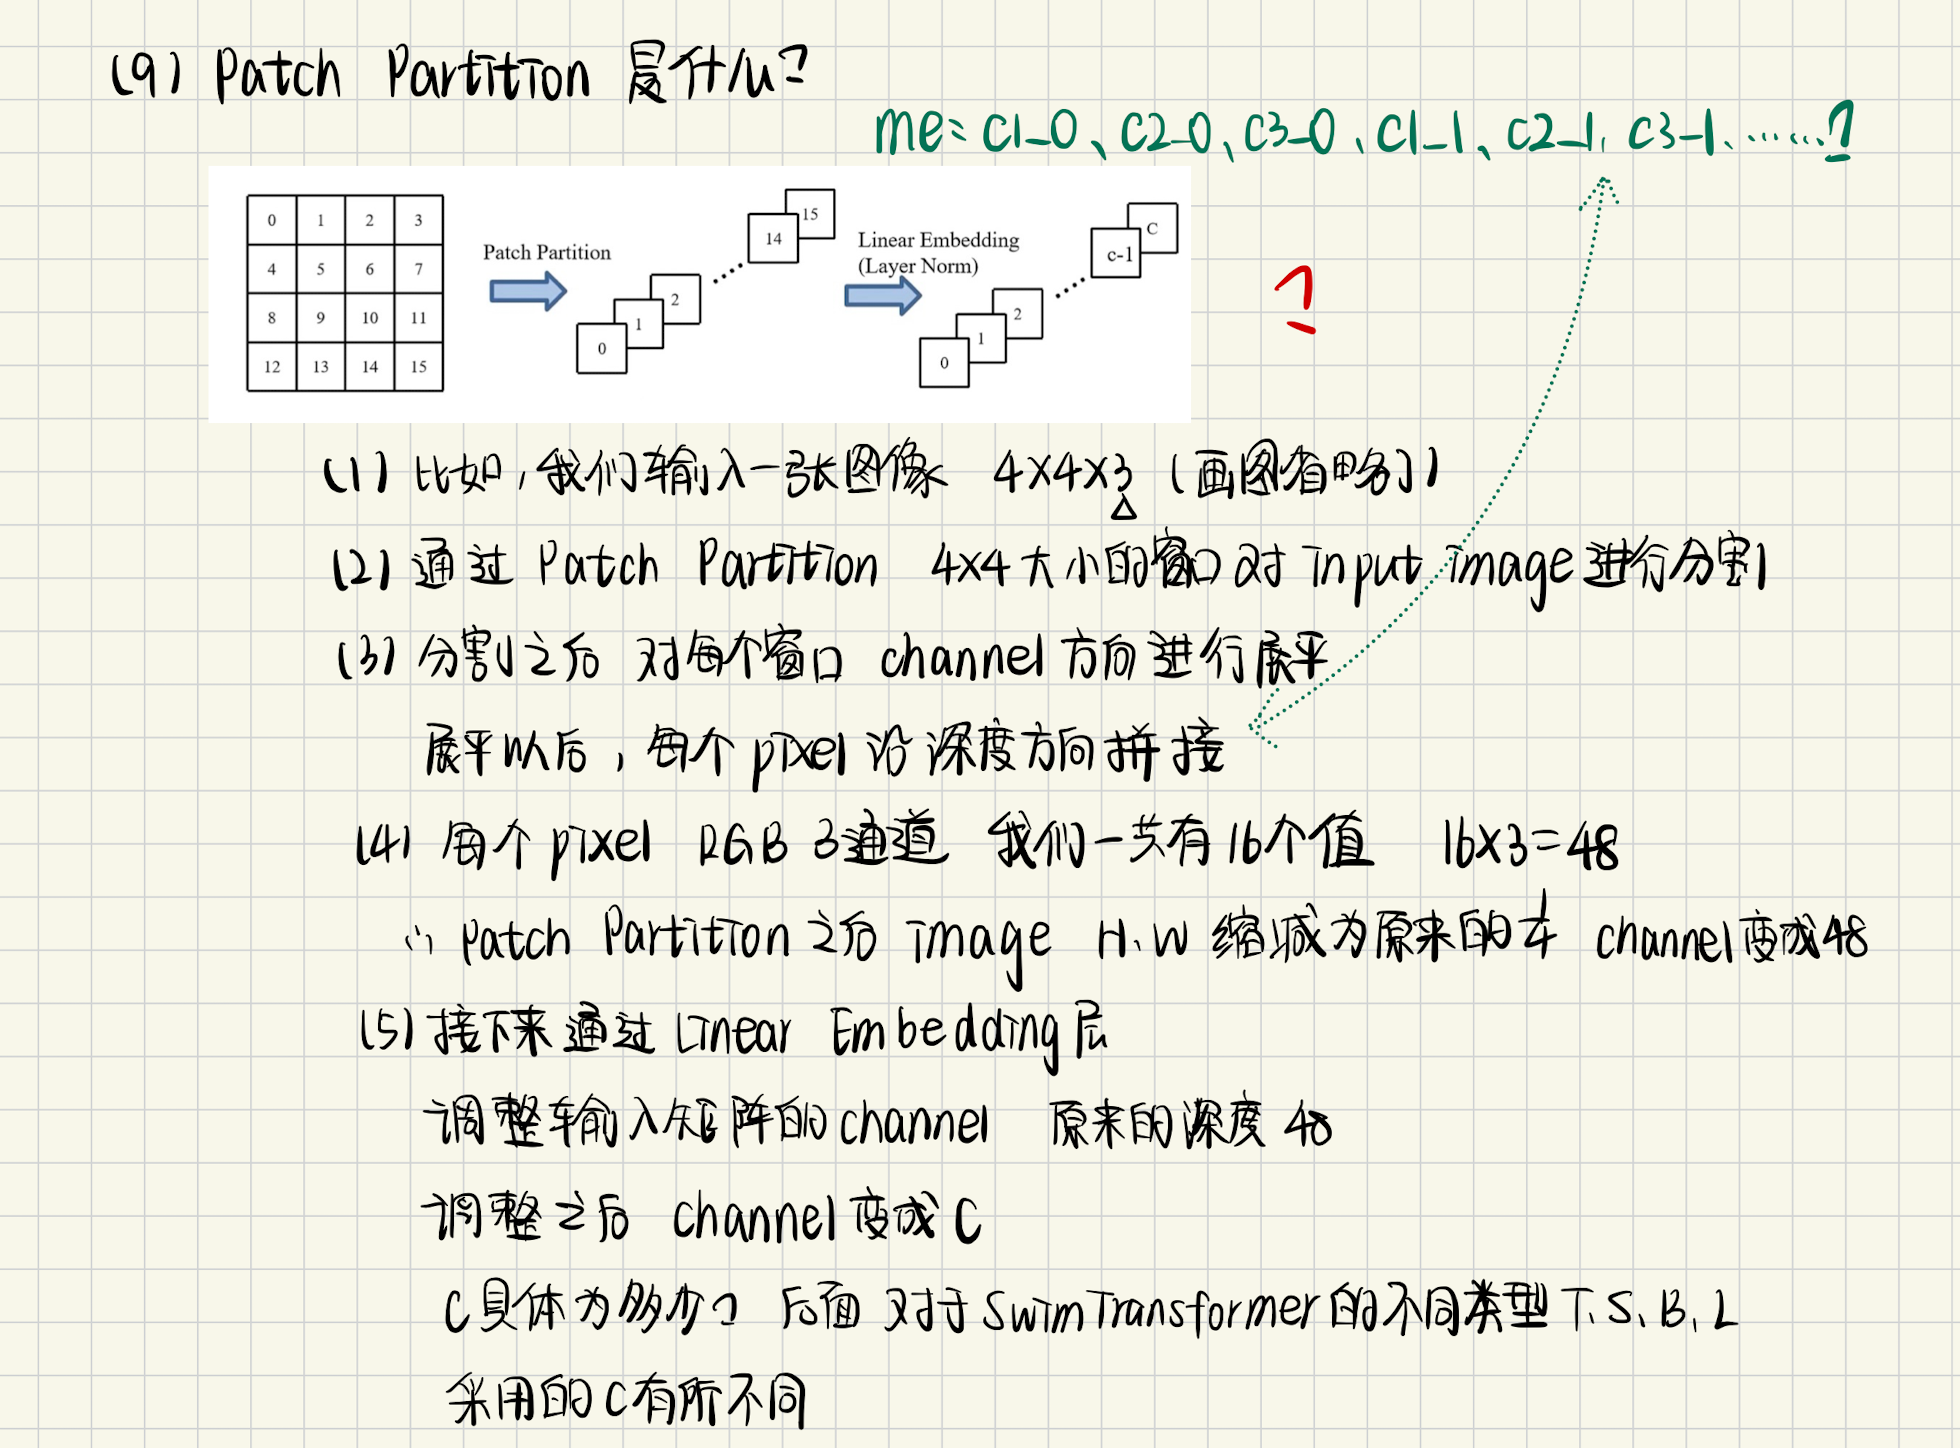 (9) Patch Partition 是什么?
me: C1-0、C2-0、C3-0、C1-1、C2-1、C3-1、……?
0 1 2 3
4 5 6 7
8 9 10 11
12 13 14 15
Patch Partition
0 1 2 14 15
Linear Embedding
(Layer Norm)
0 1 2 c-1 C
?
(1) 比如,我们输入一张图像 4×4×3 (画图省略了)
(2) 通过 Patch Partition 4×4大小的窗口对 input image进行分割
(3) 分割之后 对每个窗口 channel方向进行展平
展平以后,每个pixel沿深度方向拼接
(4) 每个pixel RGB 3通道 我们一共有16个值 16×3=48
∴ Patch Partition之后 image H、W 缩减为原来的1/4 channel变成48
(5) 接下来通过 Linear Embedding层
调整输入矩阵的channel 原来的深度 48
调整之后 channel变成C
C具体为多少? 后面 对于SwimTransformer的不同类型 T、S、B、L
采用的C有所不同